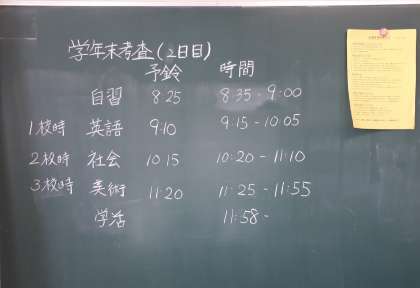 学年末考査(2日目)
予鈴 時間
自習 8:25 8:35 - 9:00
1校時 英語 9:10 9:15 - 10:05
2校時 社会 10:15 10:20 - 11:10
3校時 美術 11:20 11:25 - 11:55
学活 11:58 -